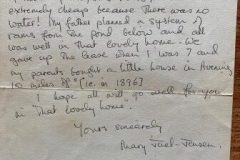 extremely cheap because there was no
water! My father planned a system of
rams from the pond below and all
was well in that lovely home. We
gave up the lease when I was 7 and
my parents bought a little house in Avening
10 miles off" (ie. in 1896)
I hope all will go well for you
in that lovely home.
Yours sincerely
Mary